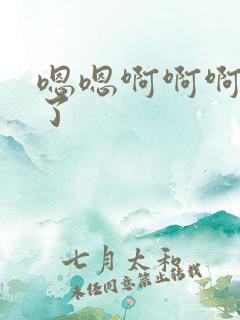 嗯嗯啊啊啊
了
七月太和
未经同意禁止转载